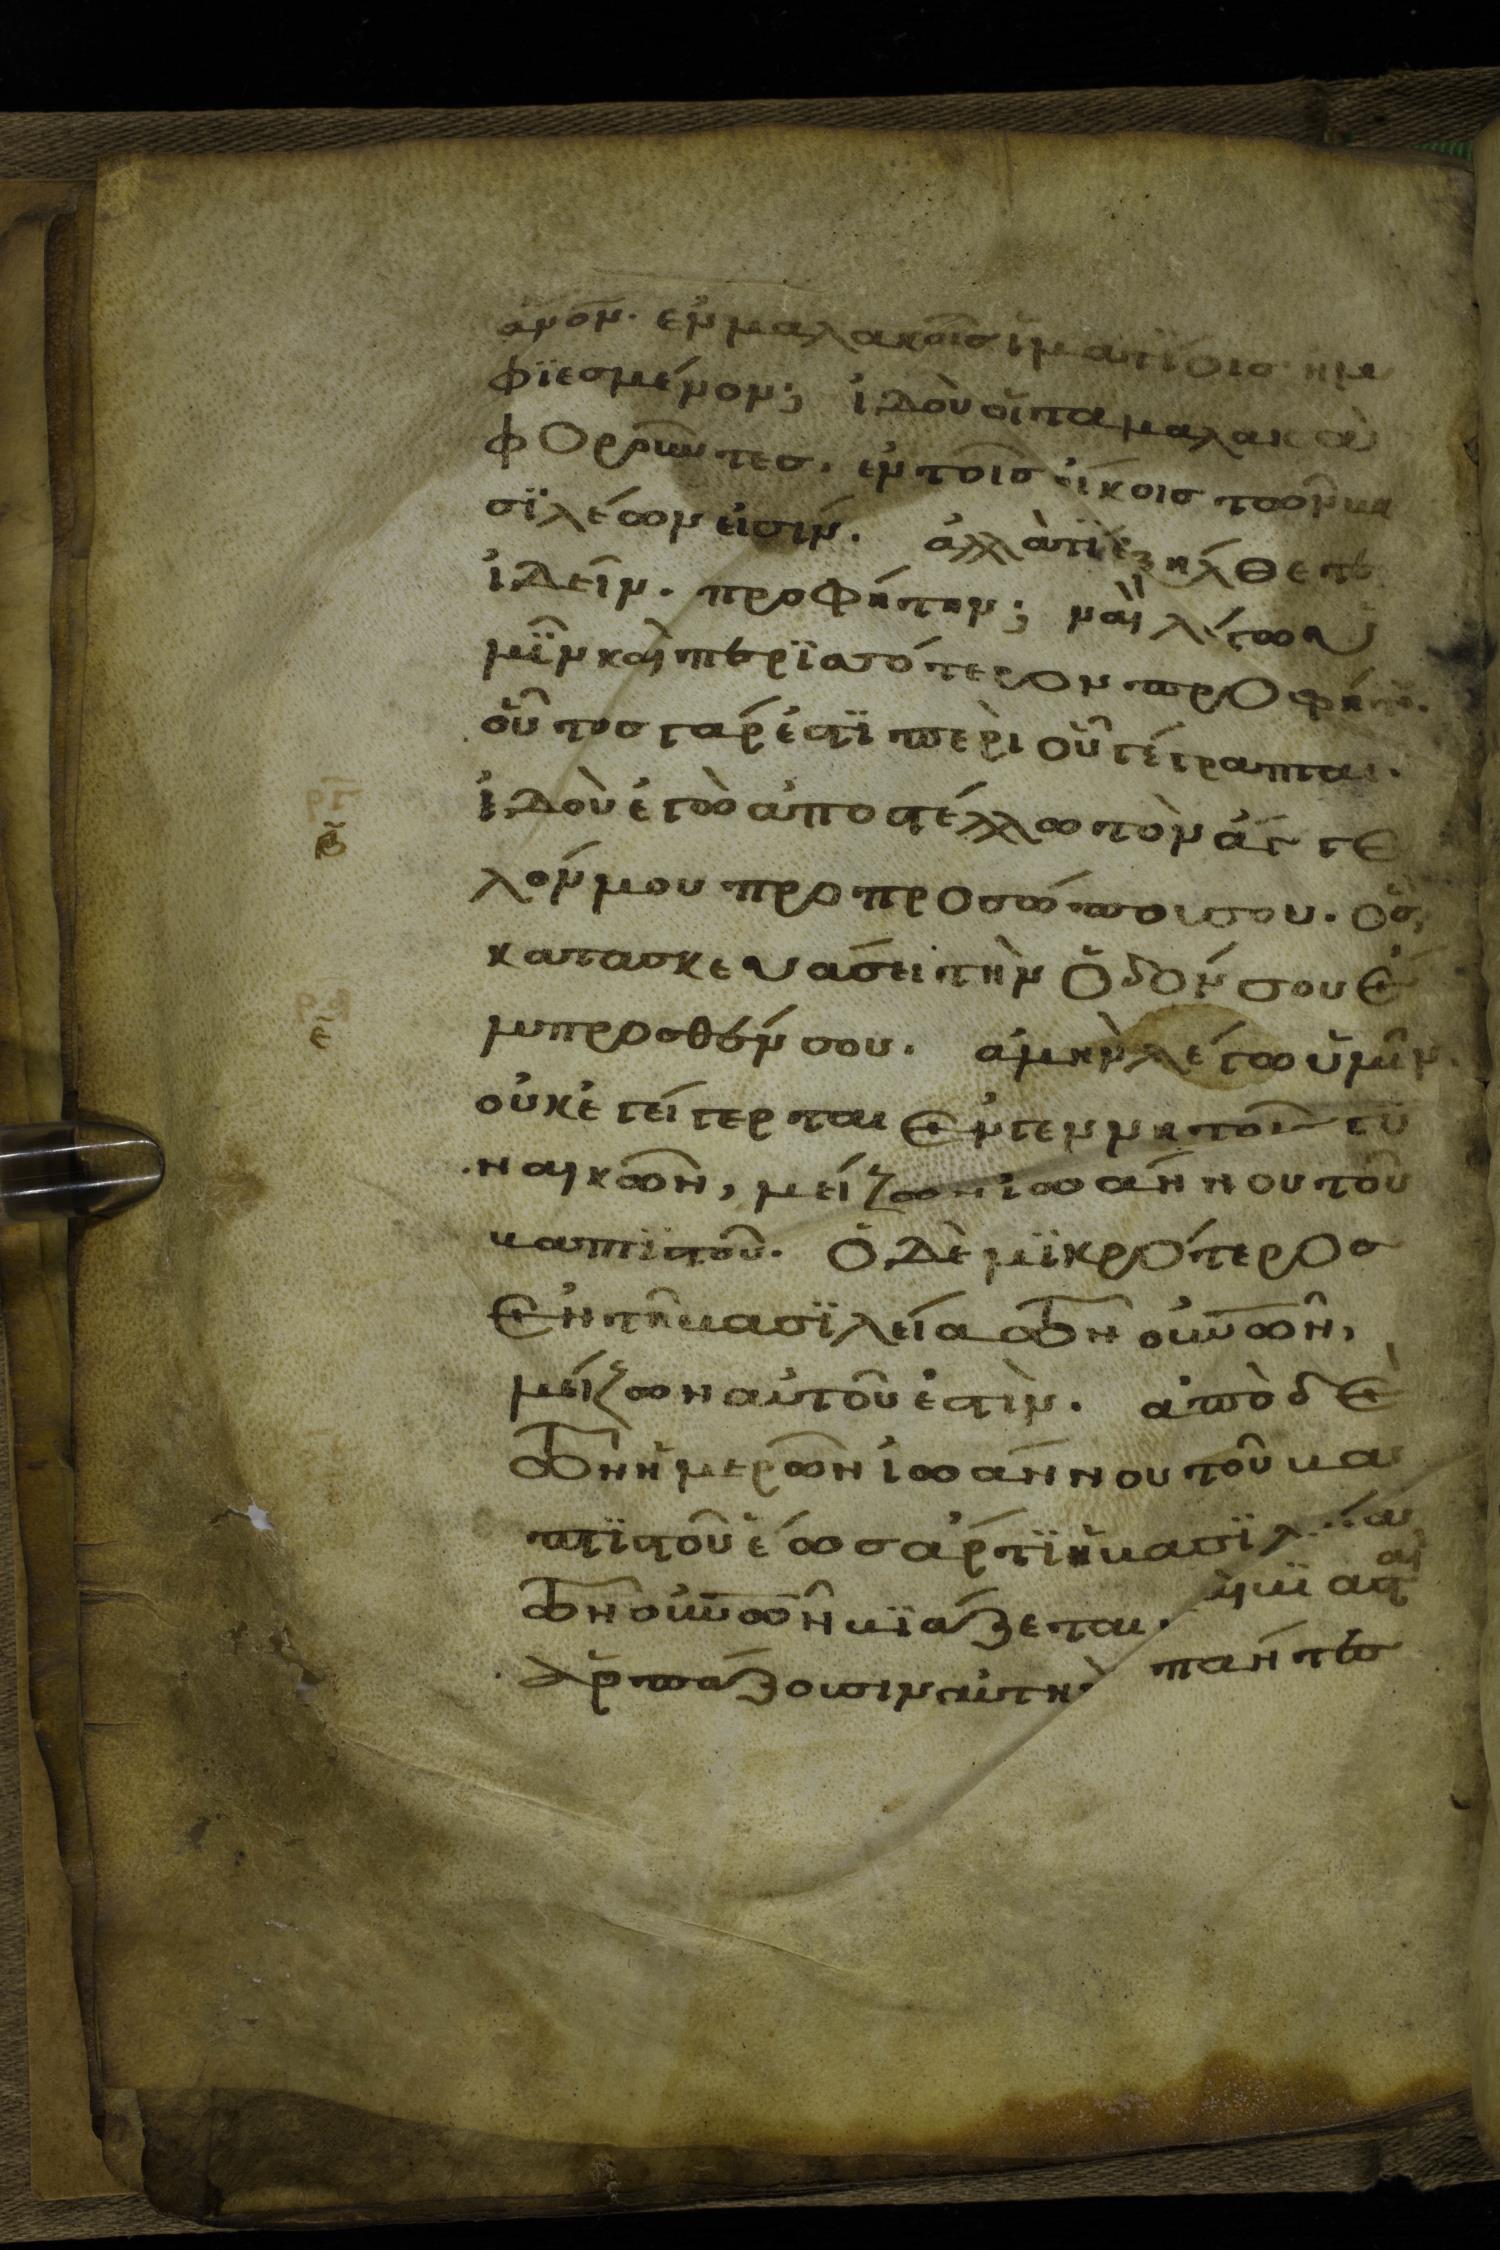 ἄνον· ἐν μαλακοῖσ ἱματίοισ ἠμ
φϊεσμένον; ἰδοὺ οἱ τὰ μαλακὰ
φοροῦντεσ. ἐν τοῖσ οἴκοισ τῶν βα
σϊλέων εἰσίν. ἀλλὰ τί ἐξήλθετε
ἰδεῖν. προφήτην; ναὶ λέγω ὑ
μῖν καὶ περϊσσότερον προφήτου.
οὗτοσ γάρ ἐστϊ περὶ οὗ γέγραπται.
ἰδοὺ ἐγὼ ἀποστέλλω τὸν ἄγγε
λόν μου προ προσώπου σου. ὃσ
κατασκευάσει τὴν ὁδόν σου ἔ
μπροσθέν σου. ἀμὴν λέγω ὑμῖν.
οὐκ ἐγείγερται ἐν γεννητοῖσ γυ
ναικῶν, μείζων ἰωάννου τοῦ
βαπτϊστοῦ. ὁ δὲ μϊκρότεροσ
ἐν τῆ βασϊλεία τῶν οὐνῶν,
μείζων αὐτοῦ ἐστὶν. ἀπὸ δὲ
τῶν ἡμερῶν ἰωάννου τοῦ βα
πτϊστοῦ ἕωσ ἄρτϊ ἡ βασϊλεία
τῶν οὐνῶν βϊάζεται. κὴ βϊασταὶ
ἁρπάζουσιν αὐτὴν πάντεσ